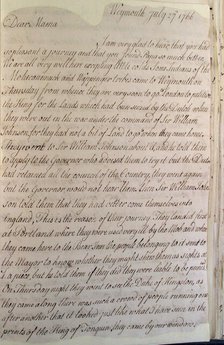 Weymouth July 27 1766
Dear Mama
I am very glad to hear that you had
so pleasant a journey and that you found Papa so much better,
We are all very well here except some Indians of the
Mohacannuck and Wappinger tribes came to Weymouth on
Thursday from whence they are very soon to go to London to petition
the King for the Lands which had been seized by the Dutch when
they where out in the war under the command of Sir William
Johnson for they had not a bit of land to go to when they came home.
to Sir William Johnson about it and he told them
to apply to the Governor who advised them to try it but the Dutch
had retained all the council of the Country, they went again
but the Governor would not hear them. Then Sir William John
son told them that they had better come themselves into
England, This is the reason of their journey They landed first
at Portland where they were used very ill by the Mob and when
they came here to the Bear Inn the people belonging to it sent to
the Mayor to know whether they might shew them as sights at
a piece, but he told them if they did they were liable to be
On Thursday night they went to see the Duke of Kingston, as
they came along there was such a crowd of people running one
after another that it looked just like what I have seen in the
prints of the King of they came by our windows